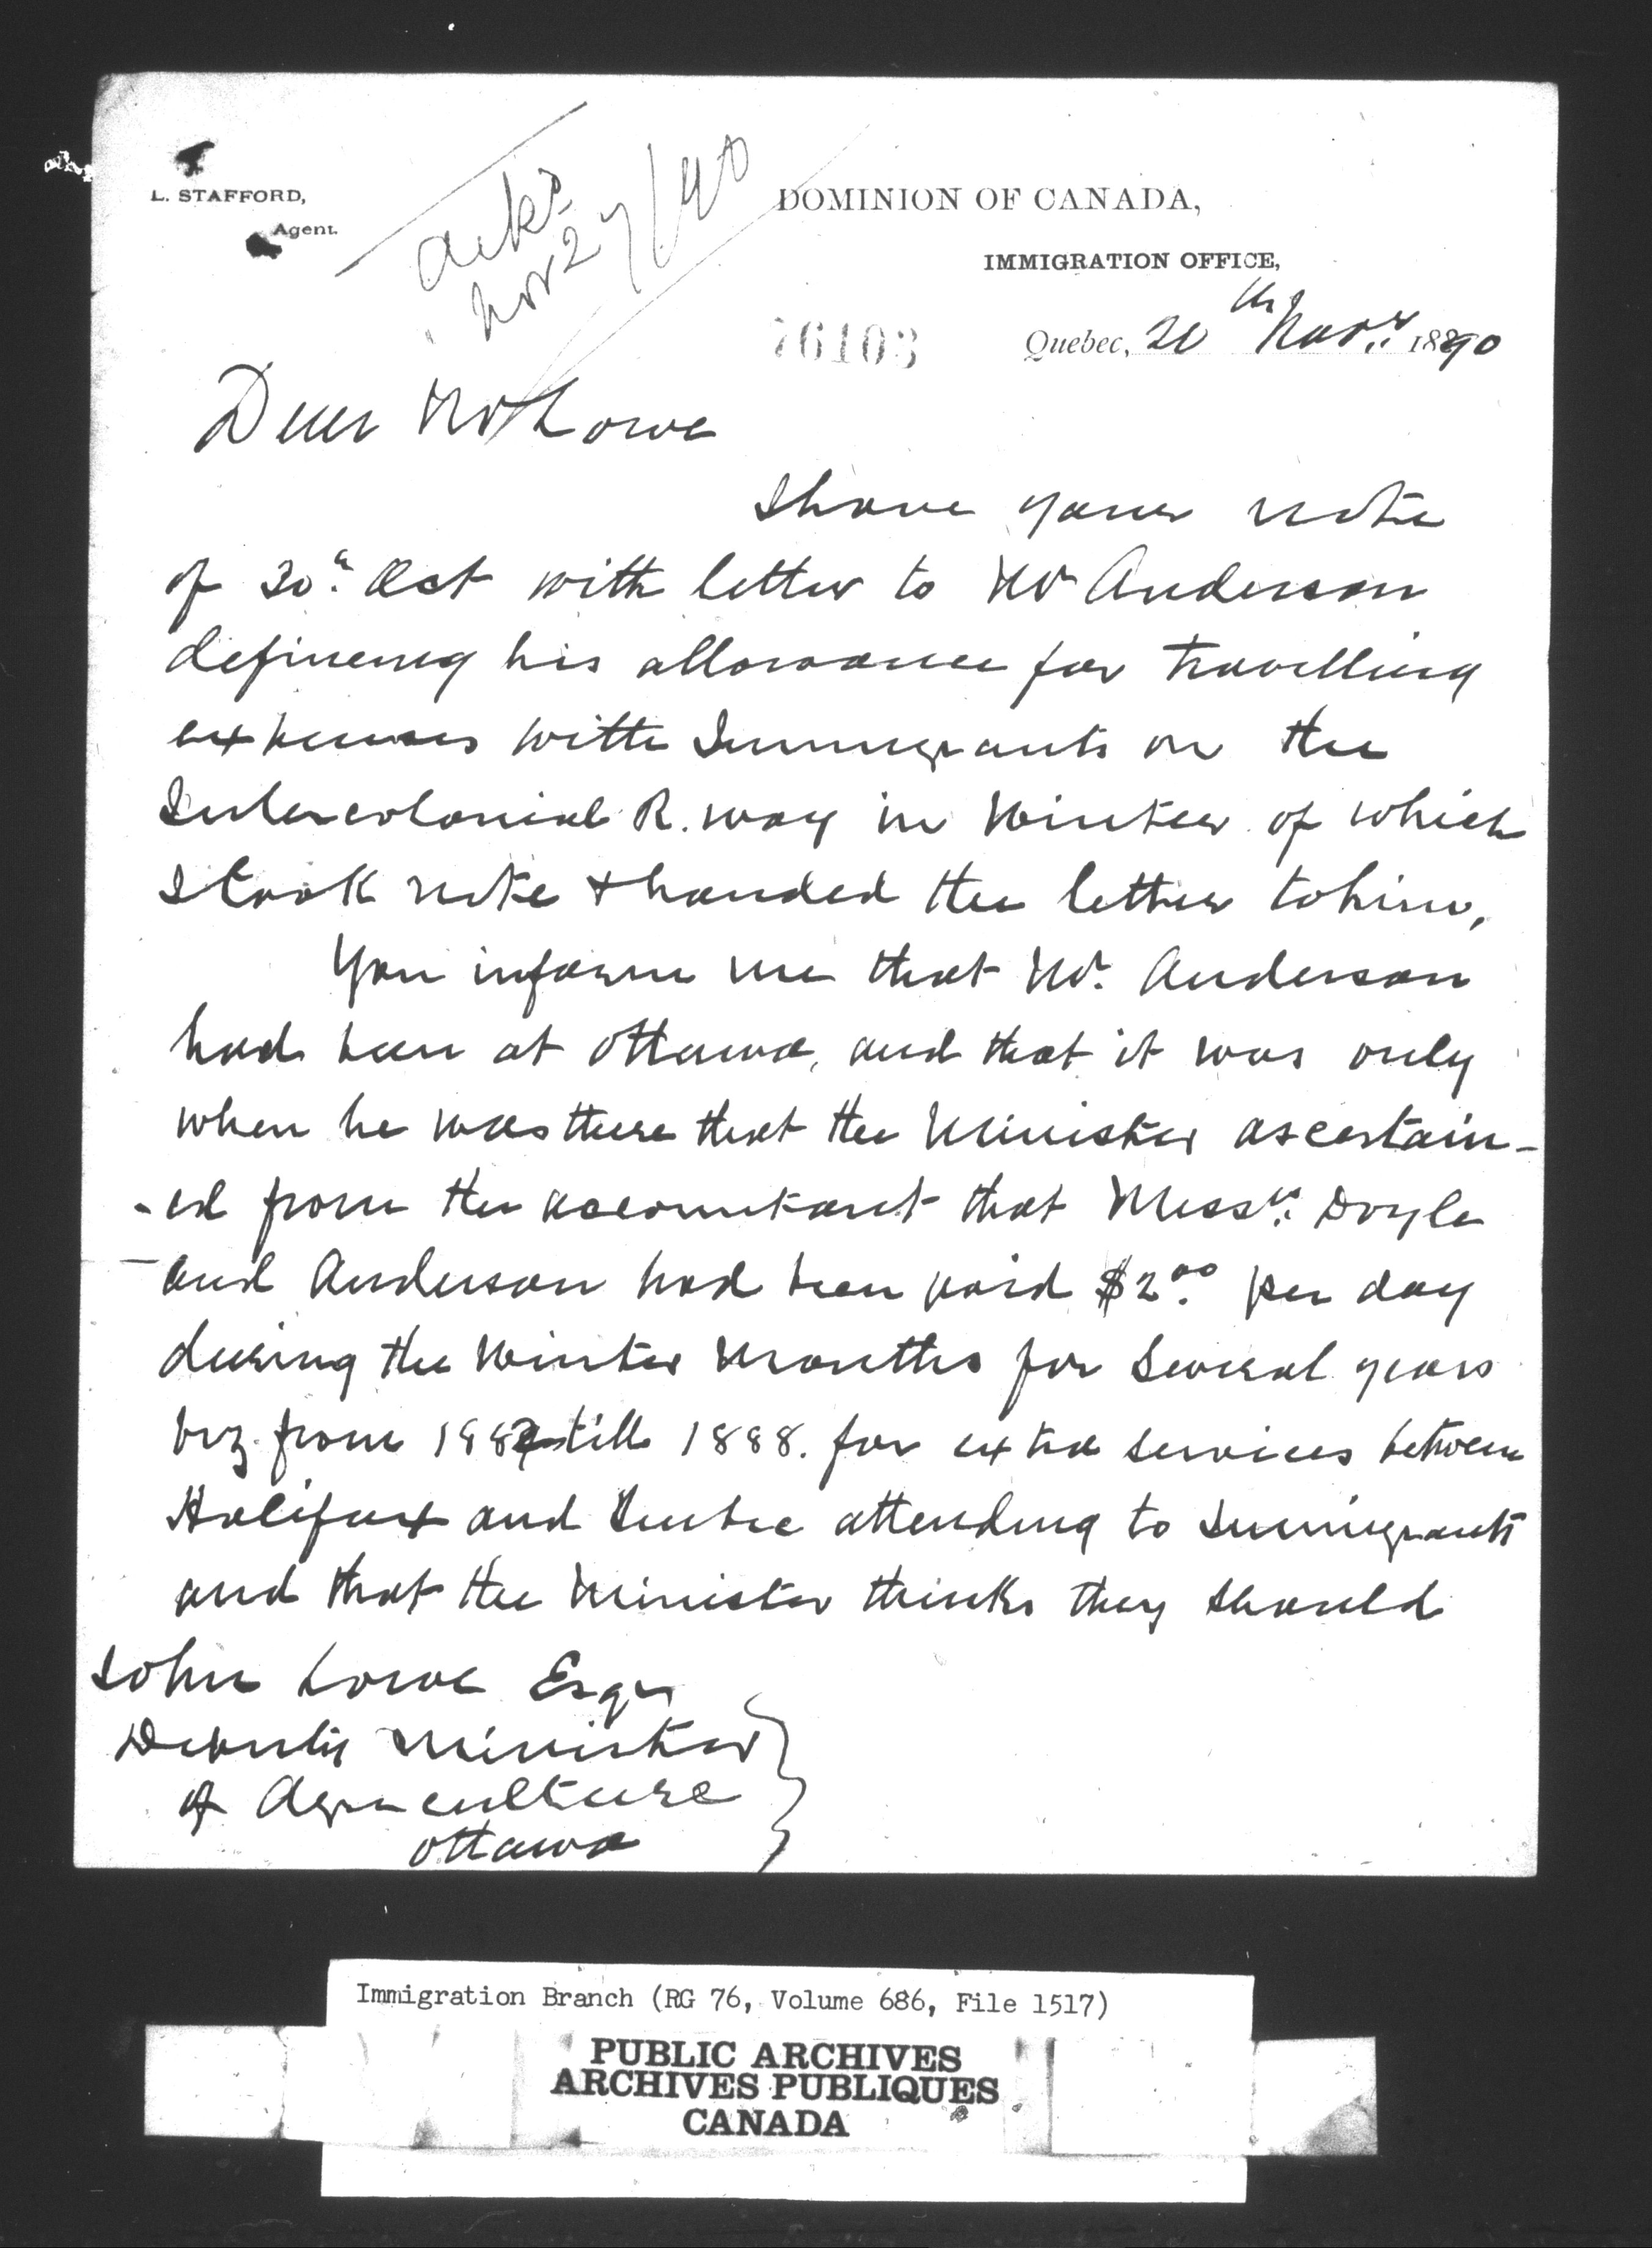 L. STAFFORD,
Agent.
Ackd
Nov 27/90
DOMINION OF CANADA,
IMMIGRATION OFFICE,
76103
Quebec, 20th Novr. 1890
Dear Mr Lowe
I have your note
of 30th Oct with letter to Mr Anderson
defining his allowance for travelling
expenses with Immigrants on the
Intercolonial R. way in Winter of which
I took note & handed the letter to him,
You inform me that Mr. Anderson
had been at Ottawa, and that it was only
when he was there that the Minister ascertain-
-ed from the accountant that Messrs. Doyle
and Anderson had been paid $2.00 per day
during the Winter Months for several years
viz. from 1882 till 1888. for extra services between
Halifax and Quebec attending to Immigrants
and that the Minister thinks they should
John Lowe Esqr
Deputy Minister
of Agriculture
Ottawa
Immigration Branch (RG 76, Volume 686, File 1517)
PUBLIC ARCHIVES
ARCHIVES PUBLIQUES
CANADA